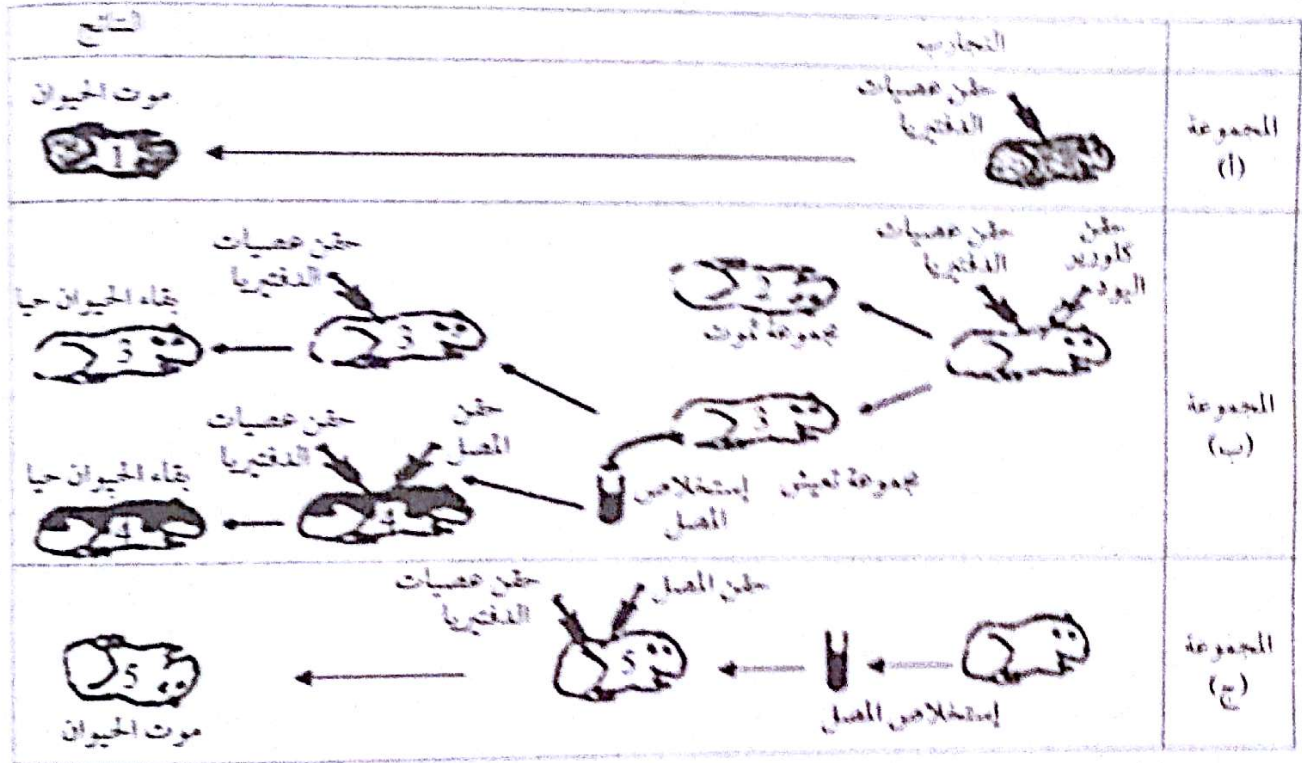 التجارب
النتائج
المجموعة
(أ)
حقن عصيات
الدفتيريا
موت الحيوان
1
المجموعة
(ب)
حقن
كلوريد
اليود
حقن عصيات
الدفتيريا
2
مجموعة تموت
3
مجموعة تعيش
إستخلاص
المصل
حقن عصيات
الدفتيريا
3
بقاء الحيوان حيا
3
حقن
المصل
حقن عصيات
الدفتيريا
4
بقاء الحيوان حيا
4
المجموعة
(ج)
إستخلاص المصل
حقن المصل
حقن عصيات
الدفتيريا
5
5
موت الحيوان